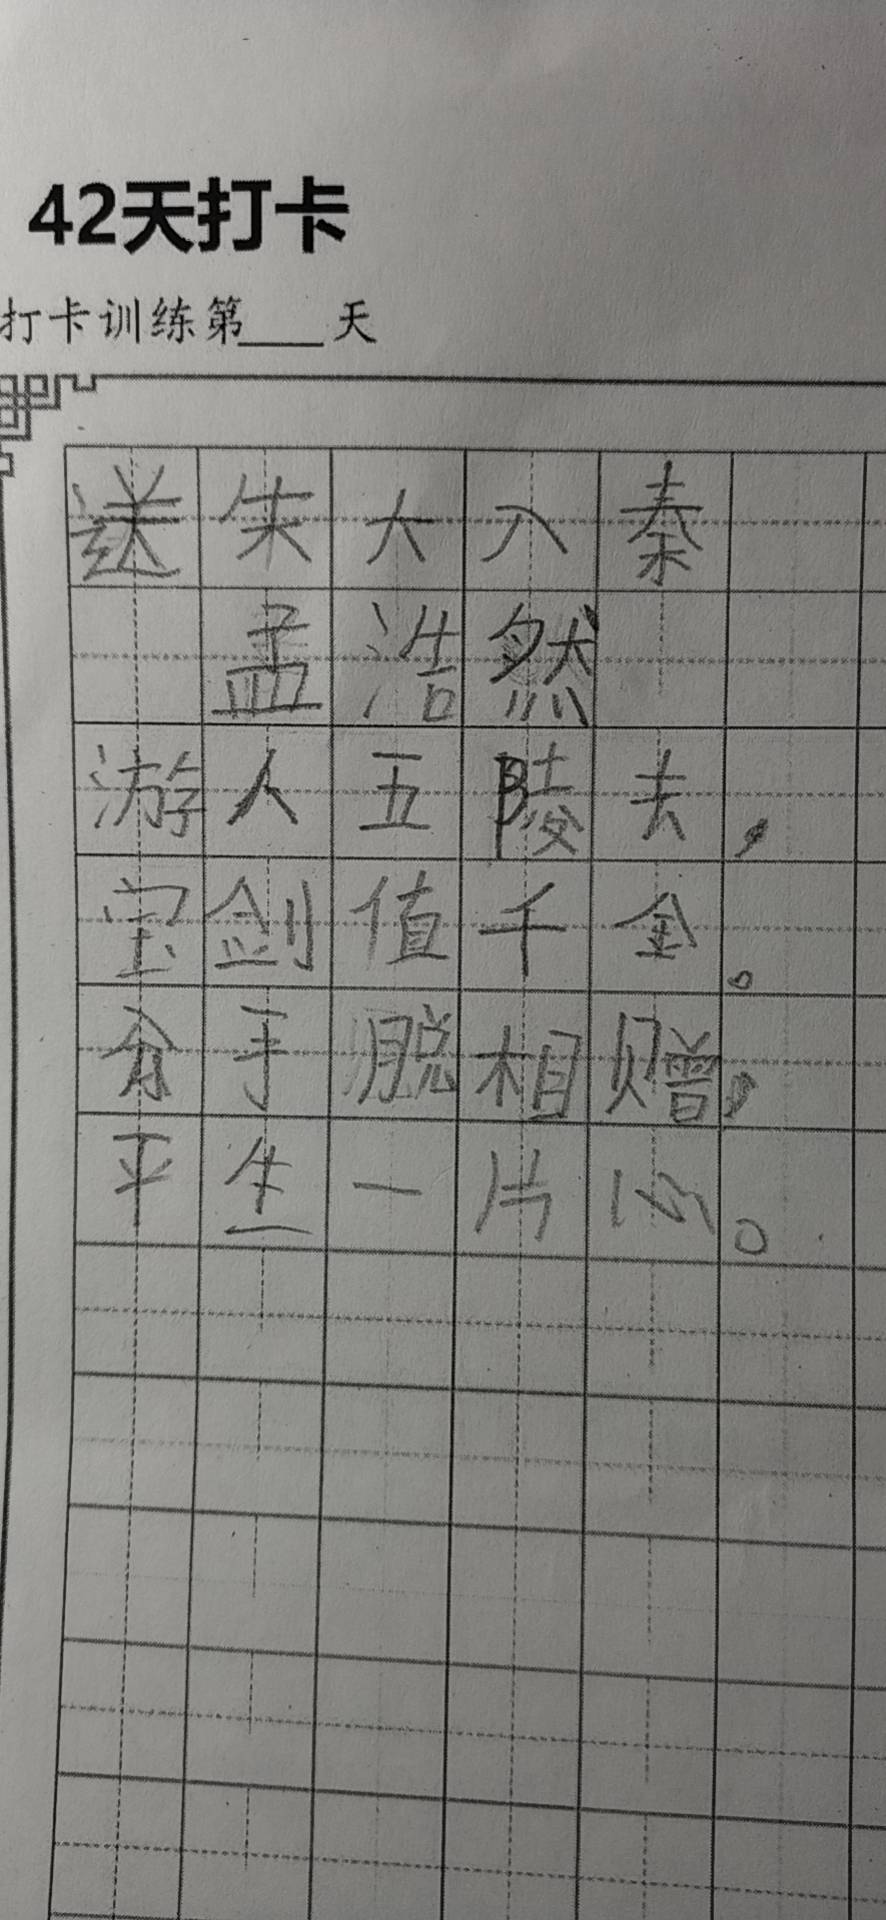 42天打卡
打卡训练第____天
送朱大入秦
孟浩然
游人五陵去，
宝剑值千金。
分手脱相赠，
平生一片心。